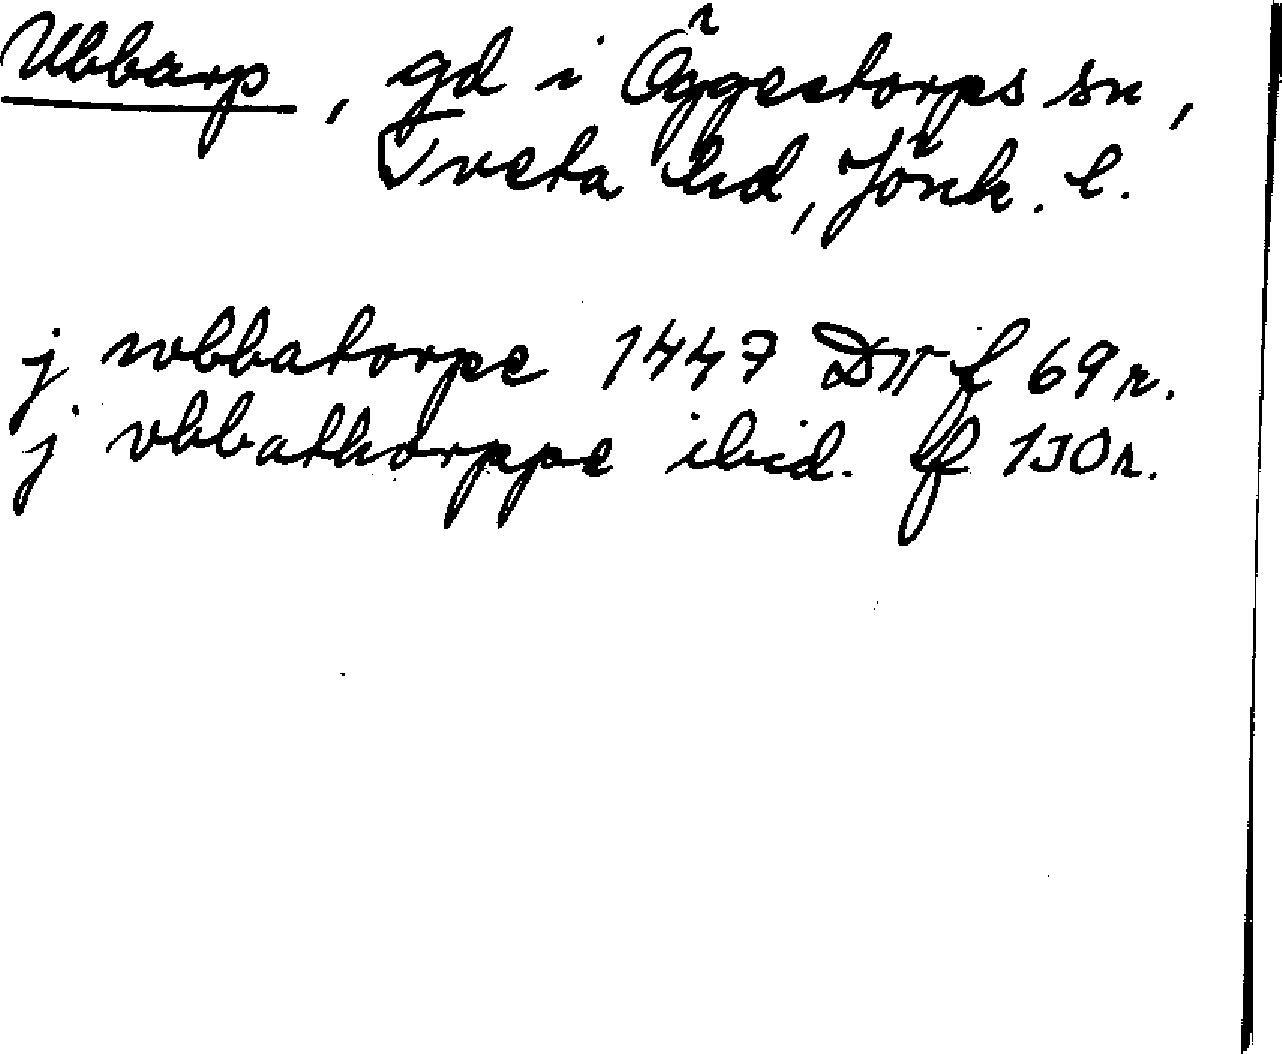 Ubbarp, gd i Öggestorps sn,
Tveta hd, Jönk. l.
j wbbatorpe 1447 DN f 69 r.
j vbbathorppe ibid. f 130 r.